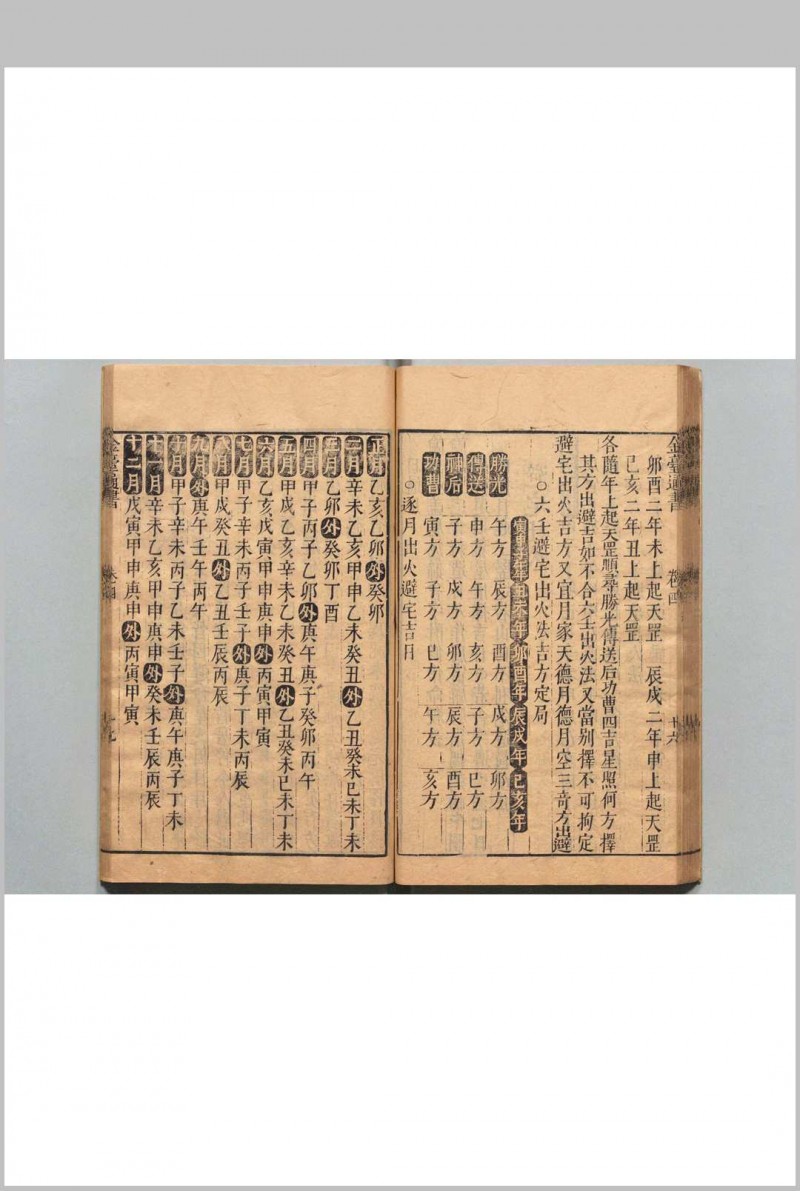 金臺通書 卷四 十六
卯酉二年未上起天罡 辰戌二年申上起天罡
巳亥二年丑上起天罡
各隨年上起天罡順尋勝光傳送后功曹四吉星照何方擇
其方出避吉如不合六壬出火法又當别擇不可拘定
避宅出火吉方又宜月家天德月德月空三竒方出避
○六壬避宅出火法吉方定局
寅申子午年 丑未年 卯酉年 辰戌年 巳亥年
勝光 午方 辰方 酉方 戌方 卯方
傳送 申方 午方 亥方 子方 巳方
神后 子方 戌方 卯方 辰方 酉方
功曹 寅方 子方 巳方 午方 亥方
○逐月出火避宅吉日
正月 乙亥乙卯外癸卯
二月 辛未乙亥甲申乙未癸丑外乙丑癸未己未丁未
三月 乙卯外癸卯丁酉
四月 甲子丙子乙卯外庚午庚子癸卯丙午
五月 甲戌乙亥辛未乙未癸丑外乙丑癸未己未丁未
六月 乙亥戊寅甲申庚申外丙寅甲寅
七月 甲子辛未丙子壬子外庚子丁未丙辰
八月 甲戌癸丑外乙丑壬辰丙辰
九月 外庚午壬午丙午
十月 甲子辛未丙子乙未壬子外庚午庚子丁未
十一月 辛未乙亥甲申庚申外癸未壬辰丙辰
十二月 戊寅甲申庚申外丙寅甲寅
金臺通書 卷四